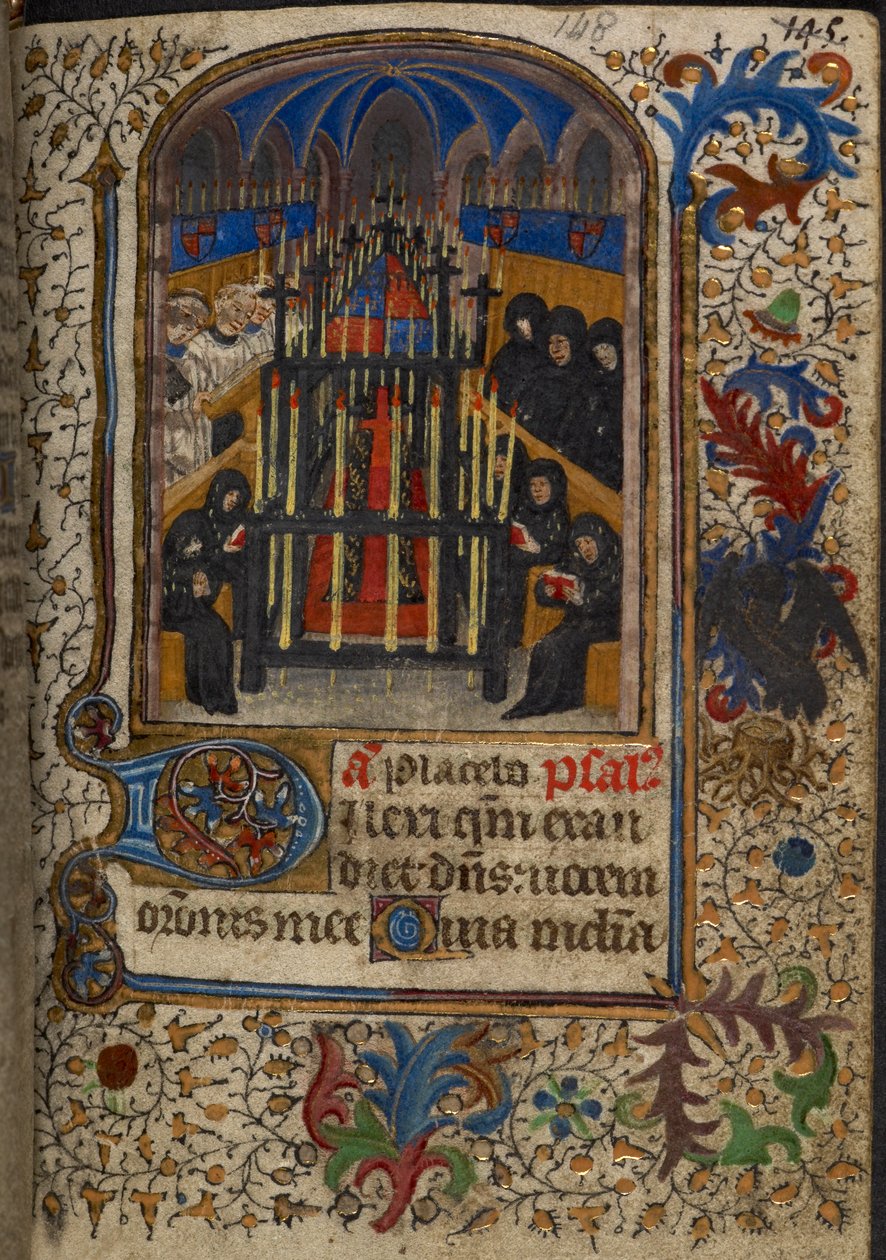 148 145.
ā Placebo psal
DIlexi qm̄ exau
diet dn̄s: uocem
or̄onis mee Quia inclīa